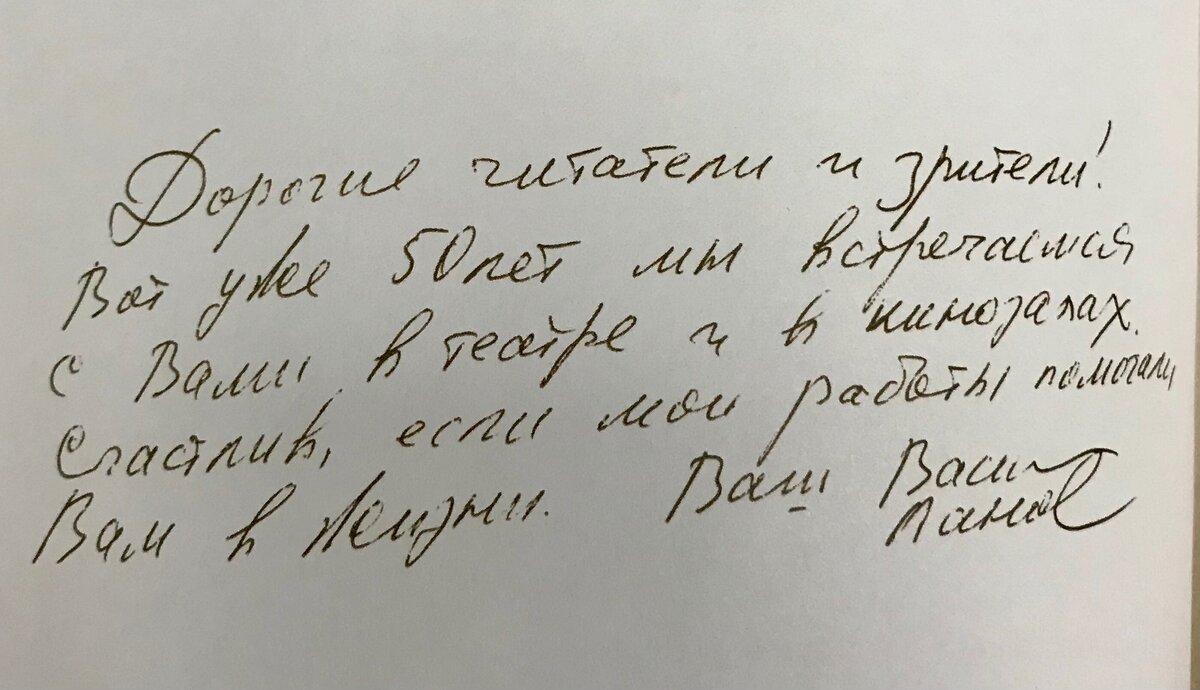 Дорогие читатели и зрители!
Вот уже 50 лет мы встречаемся
с Вами в театре и в кинозалах.
Счастлив, если мои работы помогали
Вам в жизни. Ваш Васи
Ланов